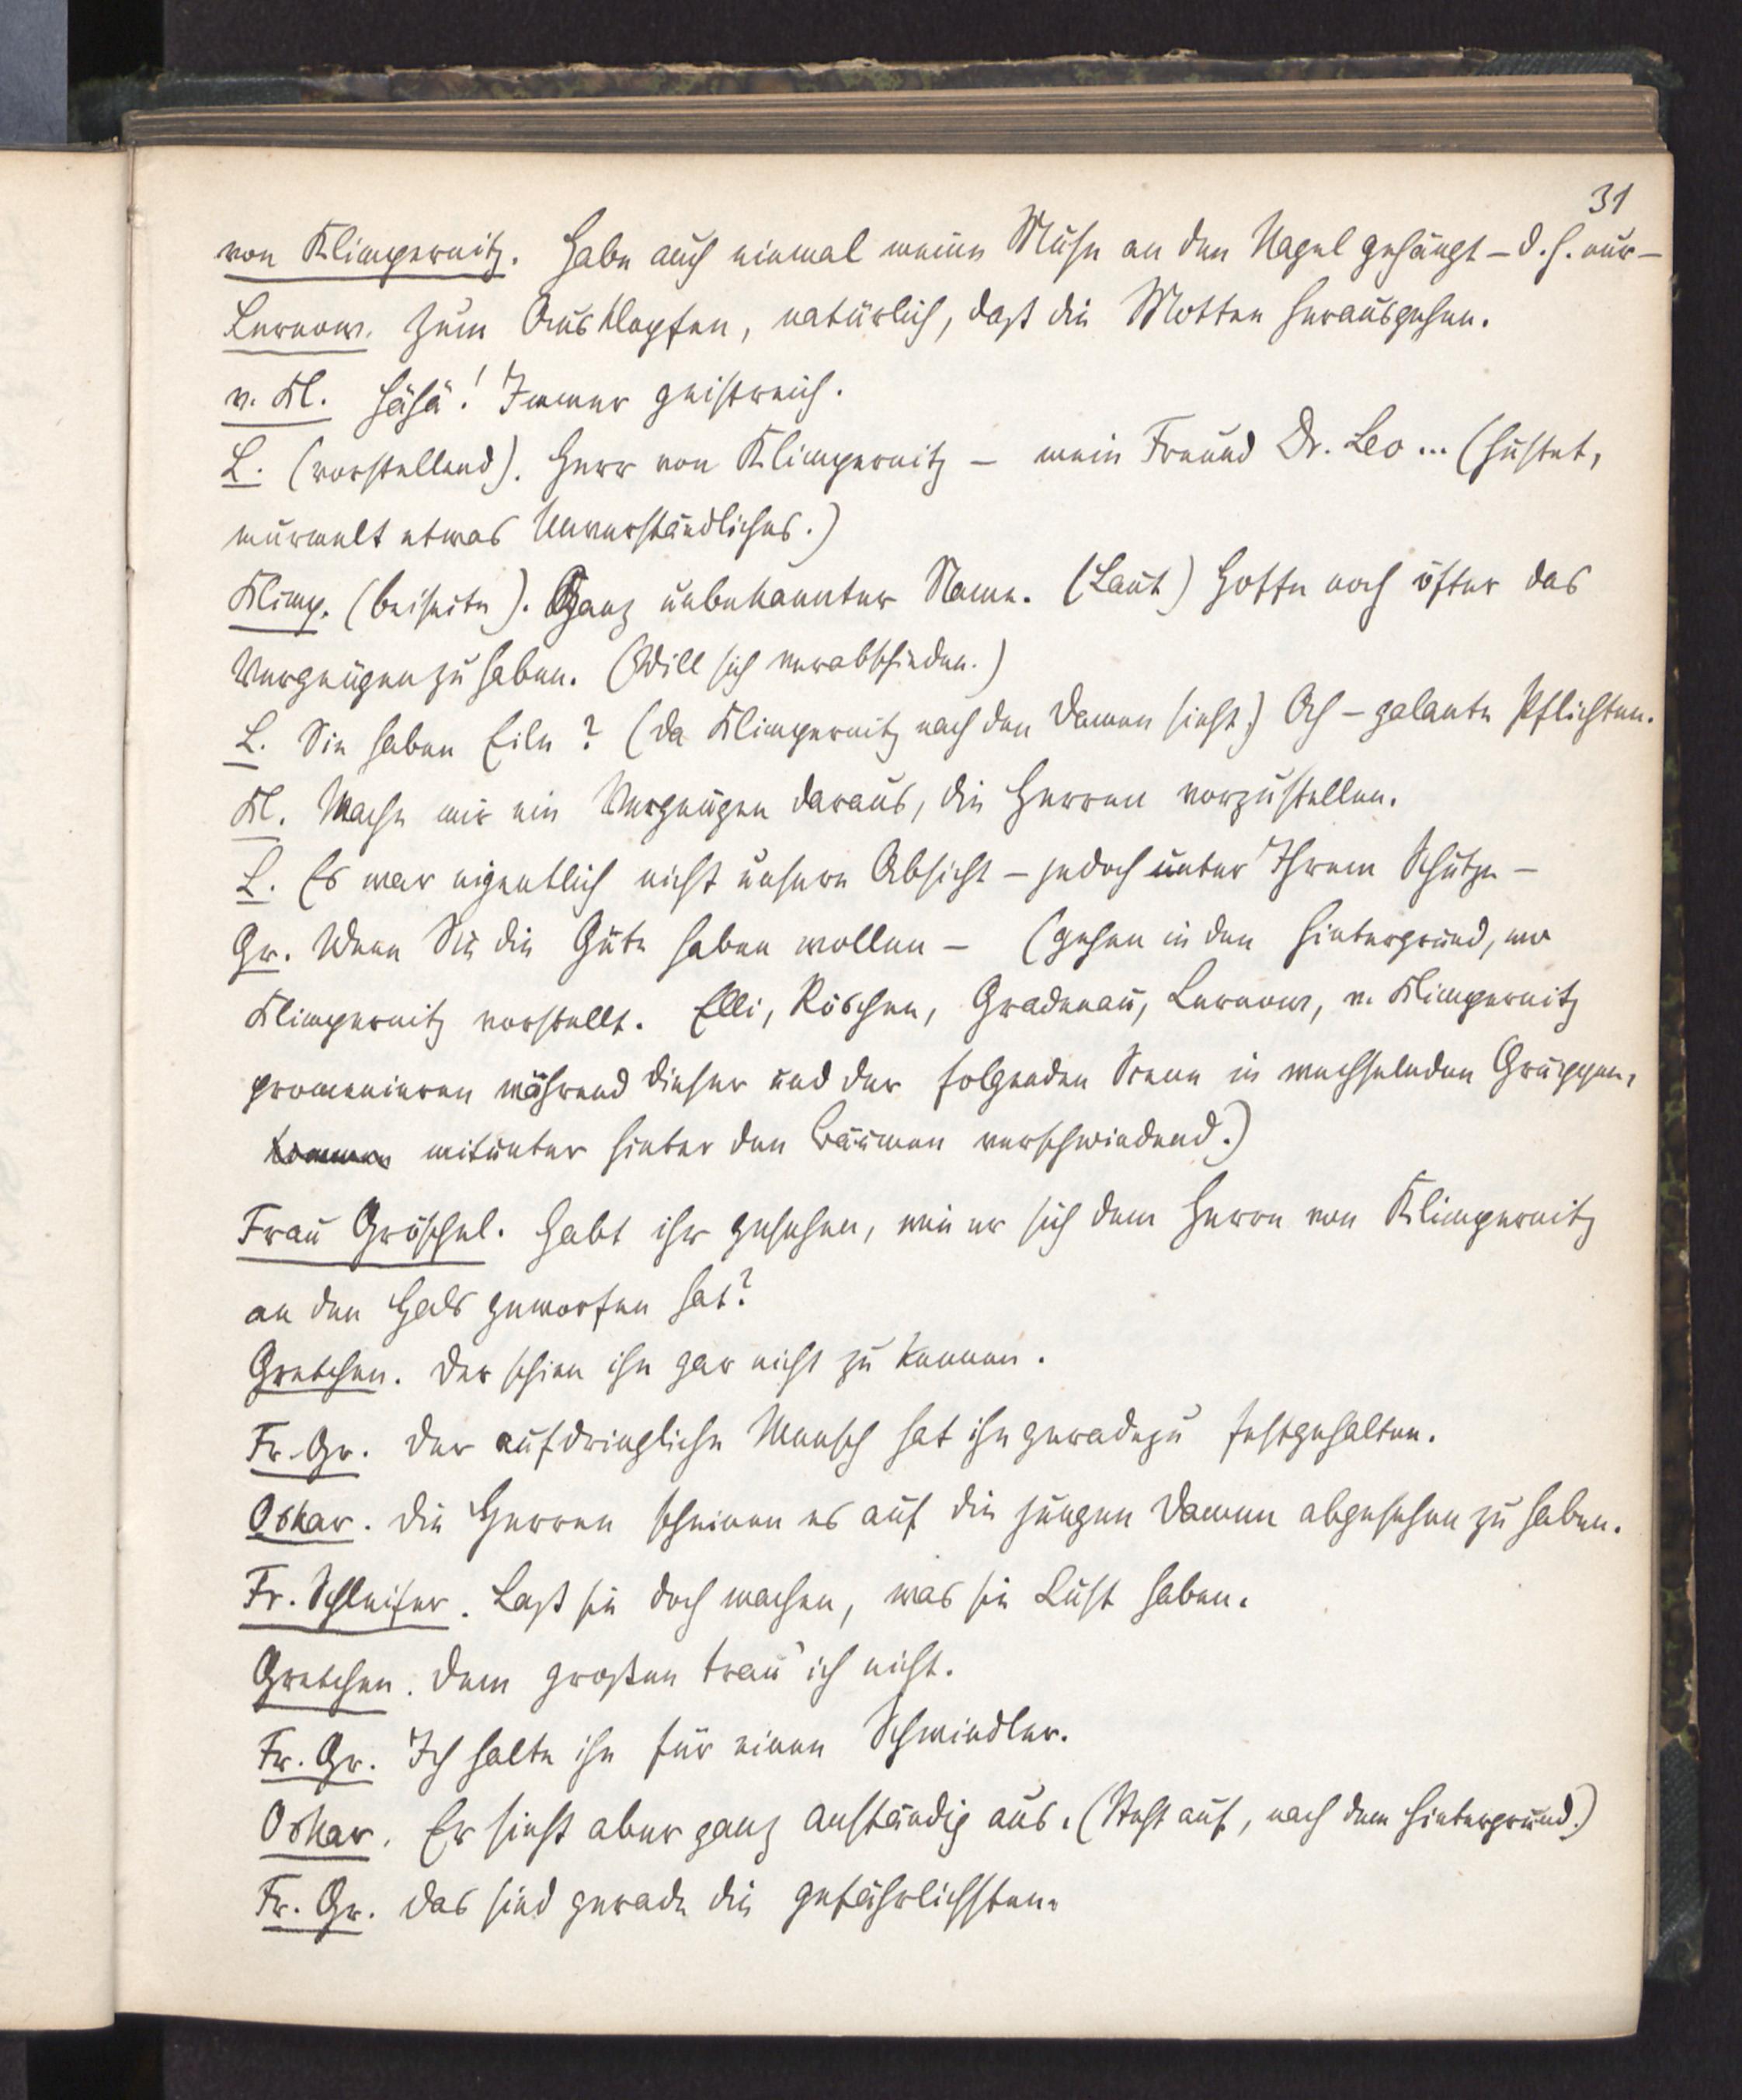 31
von Klimpernitz. Habe auch einmal meine Muse an den Nagel gehängt – d. h. nur –
Lernow. Zum Ausklopfen, natürlich, daß die Motten herausgehen.
v. Kl. Hähä! Immer geistreich.
L. (vorstellend). Herr von Klimpernitz – mein Freund Dr. Leo ... (hustet,
murmelt etwas Unverständliches.)
Klimp. (beiseite). Ganz unbekannter Name. (Laut) Hoffe noch öfter das
Vergnügen zu haben. (Will sich verabschieden.)
L. Sie haben Eile? (da Klimpernitz nach den Damen sieht.) Ach – galante Pflichten.
Kl. Mache mir ein Vergnügen daraus, die Herren vorzustellen.
L. Es war eigentlich nicht unsere Absicht – jedoch unter Ihrem Schutze –
Gr. Wenn Sie die Güte haben wollen – (gehen in den Hintergrund, wo
Klimpernitz vorstellt. Elli, Röschen, Gradenau, Lernow, v. Klimpernitz
promenieren während dieser und der folgenden Scene in wechselnden Gruppen,
kommen mitunter hinter den Bäumen verschwindend.)
Frau Gröschel. Habt ihr gesehen, wie er sich dem Herrn von Klimpernitz
an den Hals geworfen hat?
Gretchen. Der schien ihn gar nicht zu kennen.
Fr. Gr. Der aufdringliche Mensch hat ihn geradezu festgehalten.
Oskar. Die Herren scheinen es auf die jungen Damen abgesehen zu haben.
Fr. Schleifer. Laß sie doch machen, was sie Lust haben.
Gretchen. Dem großen trau' ich nicht.
Fr. Gr. Ich halte ihn für einen Schwindler.
Oskar. Er sieht aber ganz anständig aus. (Steht auf, nach dem Hintergrund.)
Fr. Gr. Das sind gerade die gefährlichsten.